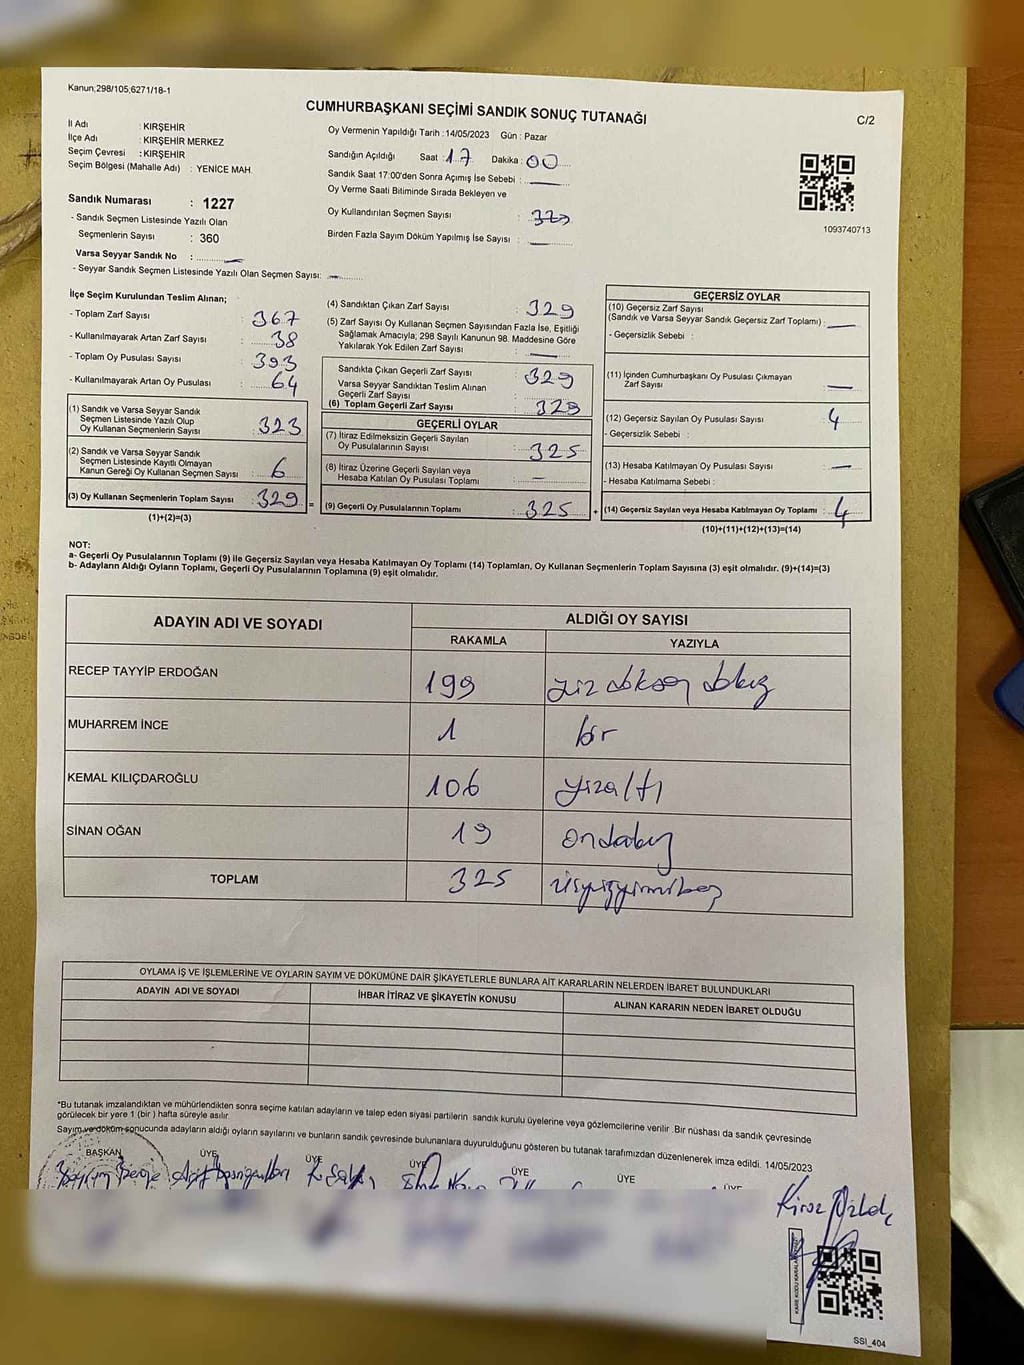 Kanun;298/105,6271/18-1
CUMHURBAŞKANI SEÇİMİ SANDIK SONUÇ TUTANAĞI
C/2
İl Adı : KIRŞEHİR
İlçe Adı : KIRŞEHİR MERKEZ
Seçim Çevresi : KIRŞEHİR
Seçim Bölgesi (Mahalle Adı) : YENİCE MAH.
Sandık Numarası : 1227
- Sandık Seçmen Listesinde Yazılı Olan
Seçmenlerin Sayısı : 360
Varsa Seyyar Sandık No : —
- Seyyar Sandık Seçmen Listesinde Yazılı Olan Seçmen Sayısı: —
Oy Vermenin Yapıldığı Tarih :14/05/2023 Gün : Pazar
Sandığın Açıldığı Saat : 17 Dakika : 00
Sandık Saat 17:00'den Sonra Açımış İse Sebebi : —
Oy Verme Saati Bitiminde Sırada Bekleyen ve
Oy Kullandırılan Seçmen Sayısı :
Birden Fazla Sayım Döküm Yapılmış İse Sayısı : —
1093740713
İlçe Seçim Kurulundan Teslim Alınan;
- Toplam Zarf Sayısı : 367
- Kullanılmayarak Artan Zarf Sayısı : 38
- Toplam Oy Pusulası Sayısı : 393
- Kullanılmayarak Artan Oy Pusulası : 64
(1) Sandık ve Varsa Seyyar Sandık
Seçmen Listesinde Yazılı Olup
Oy Kullanan Seçmenlerin Sayısı : 323
(2) Sandık ve Varsa Seyyar Sandık
Seçmen Listesinde Kayıtlı Olmayan
Kanun Gereği Oy Kullanan Seçmen Sayısı : 6
(3) Oy Kullanan Seçmenlerin Toplam Sayısı : 329
(1)+(2)=(3)
(4) Sandıktan Çıkan Zarf Sayısı : 329
(5) Zarf Sayısı Oy Kullanan Seçmen Sayısından Fazla İse, Eşitliği
Sağlamak Amacıyla; 298 Sayılı Kanunun 98. Maddesine Göre
Yakılarak Yok Edilen Zarf Sayısı : —
Sandıkta Çıkan Geçerli Zarf Sayısı : 329
Varsa Seyyar Sandıktan Teslim Alınan
Geçerli Zarf Sayısı :
(6) Toplam Geçerli Zarf Sayısı : 329
GEÇERLİ OYLAR
(7) İtiraz Edilmeksizin Geçerli Sayılan
Oy Pusulalarının Sayısı : 325
(8) İtiraz Üzerine Geçerli Sayılan veya
Hesaba Katılan Oy Pusulası Toplamı : —
= (9) Geçerli Oy Pusulalarının Toplamı : 325 +
GEÇERSİZ OYLAR
(10) Geçersiz Zarf Sayısı
(Sandık ve Varsa Seyyar Sandık Geçersiz Zarf Toplamı) : —
- Geçersizlik Sebebi :
(11) İçinden Cumhurbaşkanı Oy Pusulası Çıkmayan
Zarf Sayısı : —
(12) Geçersiz Sayılan Oy Pusulası Sayısı : 4
- Geçersizlik Sebebi :
(13) Hesaba Katılmayan Oy Pusulası Sayısı : —
- Hesaba Katılmama Sebebi :
(14) Geçersiz Sayılan veya Hesaba Katılmayan Oy Toplamı : 4
(10)+(11)+(12)+(13)=(14)
NOT:
a- Geçerli Oy Pusulalarının Toplamı (9) ile Geçersiz Sayılan veya Hesaba Katılmayan Oy Toplamı (14) Toplamları, Oy Kullanan Seçmenlerin Toplam Sayısına (3) eşit olmalıdır. (9)+(14)=(3)
b- Adayların Aldığı Oyların Toplamı, Geçerli Oy Pusulalarının Toplamına (9) eşit olmalıdır.
ADAYIN ADI VE SOYADI ALDIĞI OY SAYISI
RAKAMLA YAZIYLA
RECEP TAYYİP ERDOĞAN 199 yüz doksan dokuz
MUHARREM İNCE 1 bir
KEMAL KILIÇDAROĞLU 106 yüzaltı
SİNAN OĞAN 19 ondokuz
TOPLAM 325 üçyüzyirmibeş
OYLAMA İŞ VE İŞLEMLERİNE VE OYLARIN SAYIM VE DÖKÜMÜNE DAİR ŞİKAYETLERLE BUNLARA AİT KARARLARIN NELERDEN İBARET BULUNDUKLARI
ADAYIN ADI VE SOYADI İHBAR İTİRAZ VE ŞİKAYETİN KONUSU ALINAN KARARIN NEDEN İBARET OLDUĞU
*Bu tutanak imzalandıktan ve mühürlendikten sonra seçime katılan adayların ve talep eden siyasi partilerin sandık kurulu üyelerine veya gözlemcilerine verilir .Bir nüshası da sandık çevresinde
görülecek bir yere 1 (bir ) hafta süreyle asılır.
Sayım ve döküm sonucunda adayların aldığı oyların sayılarını ve bunların sandık çevresinde bulunanlara duyurulduğunu gösteren bu tutanak tarafımızdan düzenlenerek imza edildi. 14/05/2023
BAŞKAN ÜYE ÜYE ÜYE ÜYE ÜYE ÜYE
SSI_404